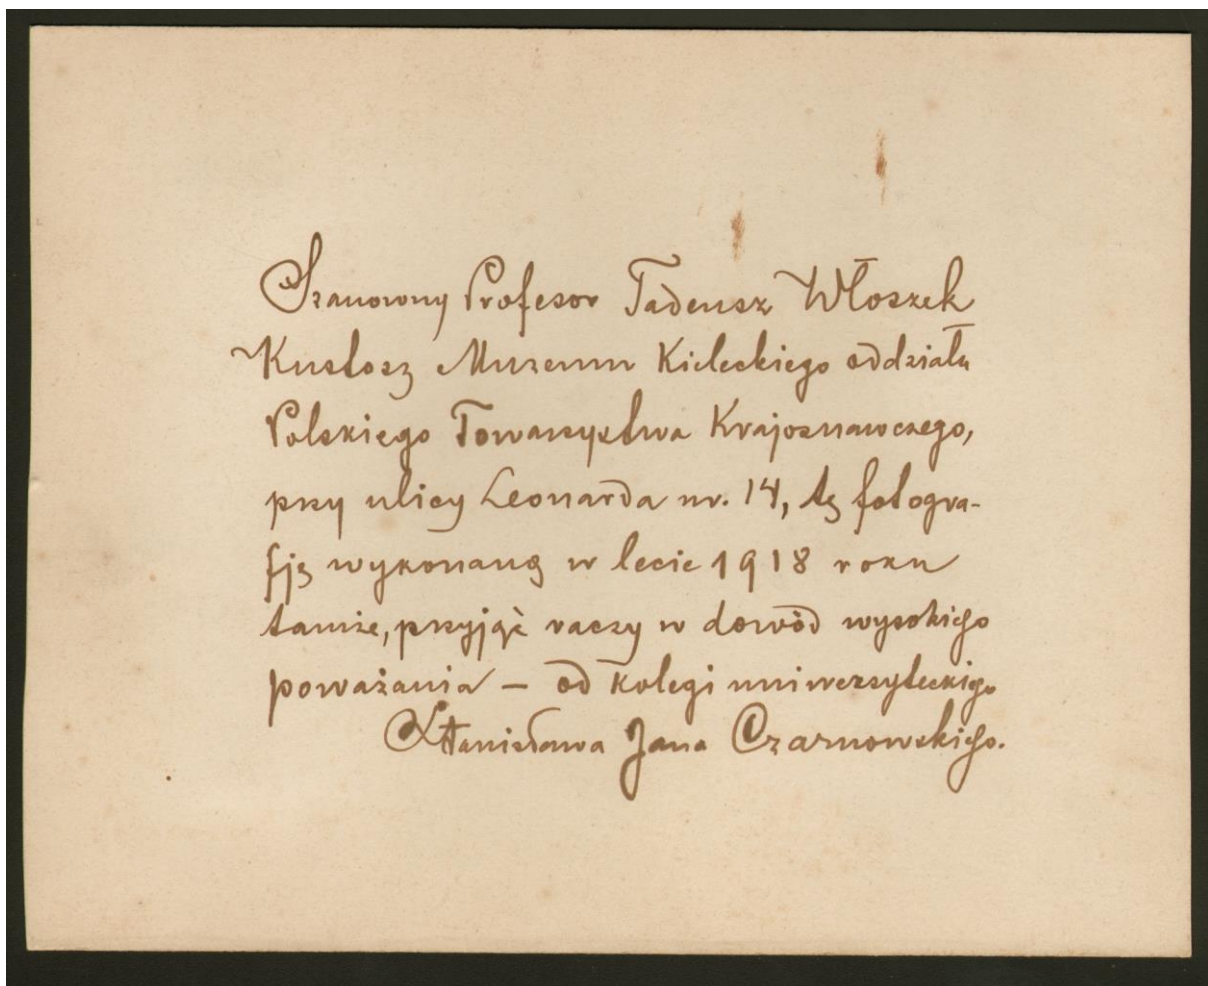 Szanowny Profesor Tadeusz Włoszek
Kustosz Muzeum Kieleckiego oddziału
Polskiego Towarzystwa Krajoznawczego,
przy ulicy Leonarda nr. 14, tę fotogra-
fję wykonaną w lecie 1918 roku
tamże, przyjąć raczy w dowód wysokiego
poważania – od kolegi uniwersyteckiego
Stanisława Jana Czarnowskiego.